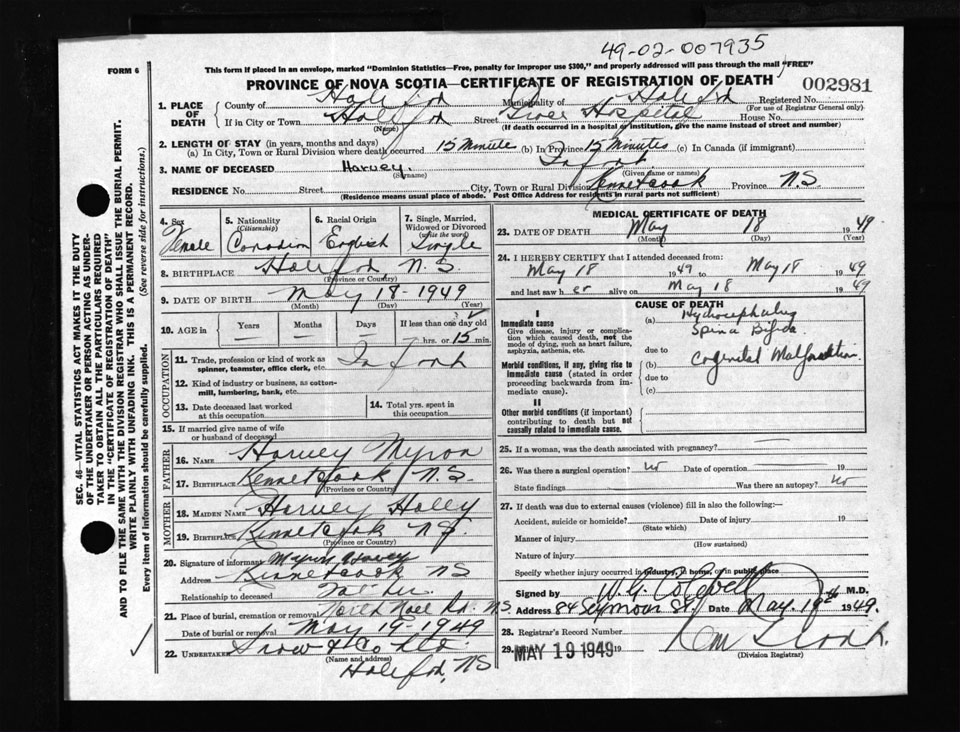 49-02-007935
FORM 6
This form if placed in an envelope, marked "Dominion Statistics—Free, penalty for improper use $300," and properly addressed will pass through the mail "FREE"
PROVINCE OF NOVA SCOTIA—CERTIFICATE OF REGISTRATION OF DEATH
002981
1. PLACE OF DEATH
County of Halifax Municipality of Halifax Registered No.
(For use of Registrar General only)
If in City or Town Halifax Street Grace Hospital House No.
(Name) (If death occurred in a hospital or institution, give the name instead of street and number)
2. LENGTH OF STAY (in years, months and days)
(a) In City, Town or Rural Division where death occurred 15 Minute (b) In Province 15 Minutes (c) In Canada (if immigrant)
3. NAME OF DECEASED Harvey. Infant
(Surname) (Given name or names)
RESIDENCE No. Street City, Town or Rural Division Kennetcook Province N.S.
(Residence means usual place of abode. Post Office Address for residents in rural parts not sufficient)
4. Sex Female
5. Nationality (Citizenship) Canadian
6. Racial Origin English
7. Single, Married, Widowed or Divorced (write the word) Single
8. BIRTHPLACE Halifax, N.S.
(Province or Country)
9. DATE OF BIRTH May 18-1949
(Month) (Day) (Year)
10. AGE in Years Months Days If less than one day old
hrs. or 15 min.
OCCUPATION
11. Trade, profession or kind of work as spinner, teamster, office clerk, etc. Infant
12. Kind of industry or business, as cotton-mill, lumbering, bank, etc.
13. Date deceased last worked at this occupation
14. Total yrs. spent in this occupation
15. If married give name of wife or husband of deceased
FATHER
16. NAME Harvey Myron
17. BIRTHPLACE Kennetcook N.S.
(Province or Country)
MOTHER
18. MAIDEN NAME Harvey
19. BIRTHPLACE Kennetcook N.S.
(Province or Country)
20. Signature of informant Myron Harvey
Address Kennetcook NS
Relationship to deceased Father
21. Place of burial, cremation or removal North Noel Rd. N.S.
Date of burial or removal May 19-1949
22. UNDERTAKER Snow & Co Ltd.
(Name and address)
Halifax, NS
MEDICAL CERTIFICATE OF DEATH
23. DATE OF DEATH May 18 1949
(Month) (Day) (Year)
24. I HEREBY CERTIFY that I attended deceased from:
May 18 1949 to May 18 1949
and last saw her alive on May 18 1949
CAUSE OF DEATH
I
Immediate cause
Give disease, injury or complication which caused death, not the mode of dying, such as heart failure, asphyxia, asthenia, etc.
(a) Hydrocephalus
Spina Bifida
due to
Morbid conditions, if any, giving rise to immediate cause (stated in order proceeding backwards from immediate cause).
(b) Cogenital Malformation
due to
(c)
II
Other morbid conditions (if important) contributing to death but not causally related to immediate cause.
25. If a woman, was the death associated with pregnancy?
26. Was there a surgical operation? no Date of operation 19
State findings Was there an autopsy? no
27. If death was due to external causes (violence) fill in also the following:—
Accident, suicide or homicide? Date of injury 19
(State which)
Manner of injury
(How sustained)
Nature of injury
Specify whether injury occurred in industry, in home, or in public place
Signed by W.G. Colwell M.D.
Address 84 Seymour St. Date May. 19th 1949.
28. Registrar's Record Number
29. MAY 19 1949 19
(Division Registrar)
SEC. 46—VITAL STATISTICS ACT MAKES IT THE DUTY
OF THE UNDERTAKER OR PERSON ACTING AS UNDER-
TAKER TO OBTAIN ALL THE PARTICULARS REQUIRED
IN THE "CERTIFICATE OF REGISTRATION OF DEATH"
AND TO FILE THE SAME WITH THE DIVISION REGISTRAR WHO SHALL ISSUE THE BURIAL PERMIT.
WRITE PLAINLY WITH UNFADING INK. THIS IS A PERMANENT RECORD.
Every item of information should be carefully supplied. (See reverse side for instructions.)